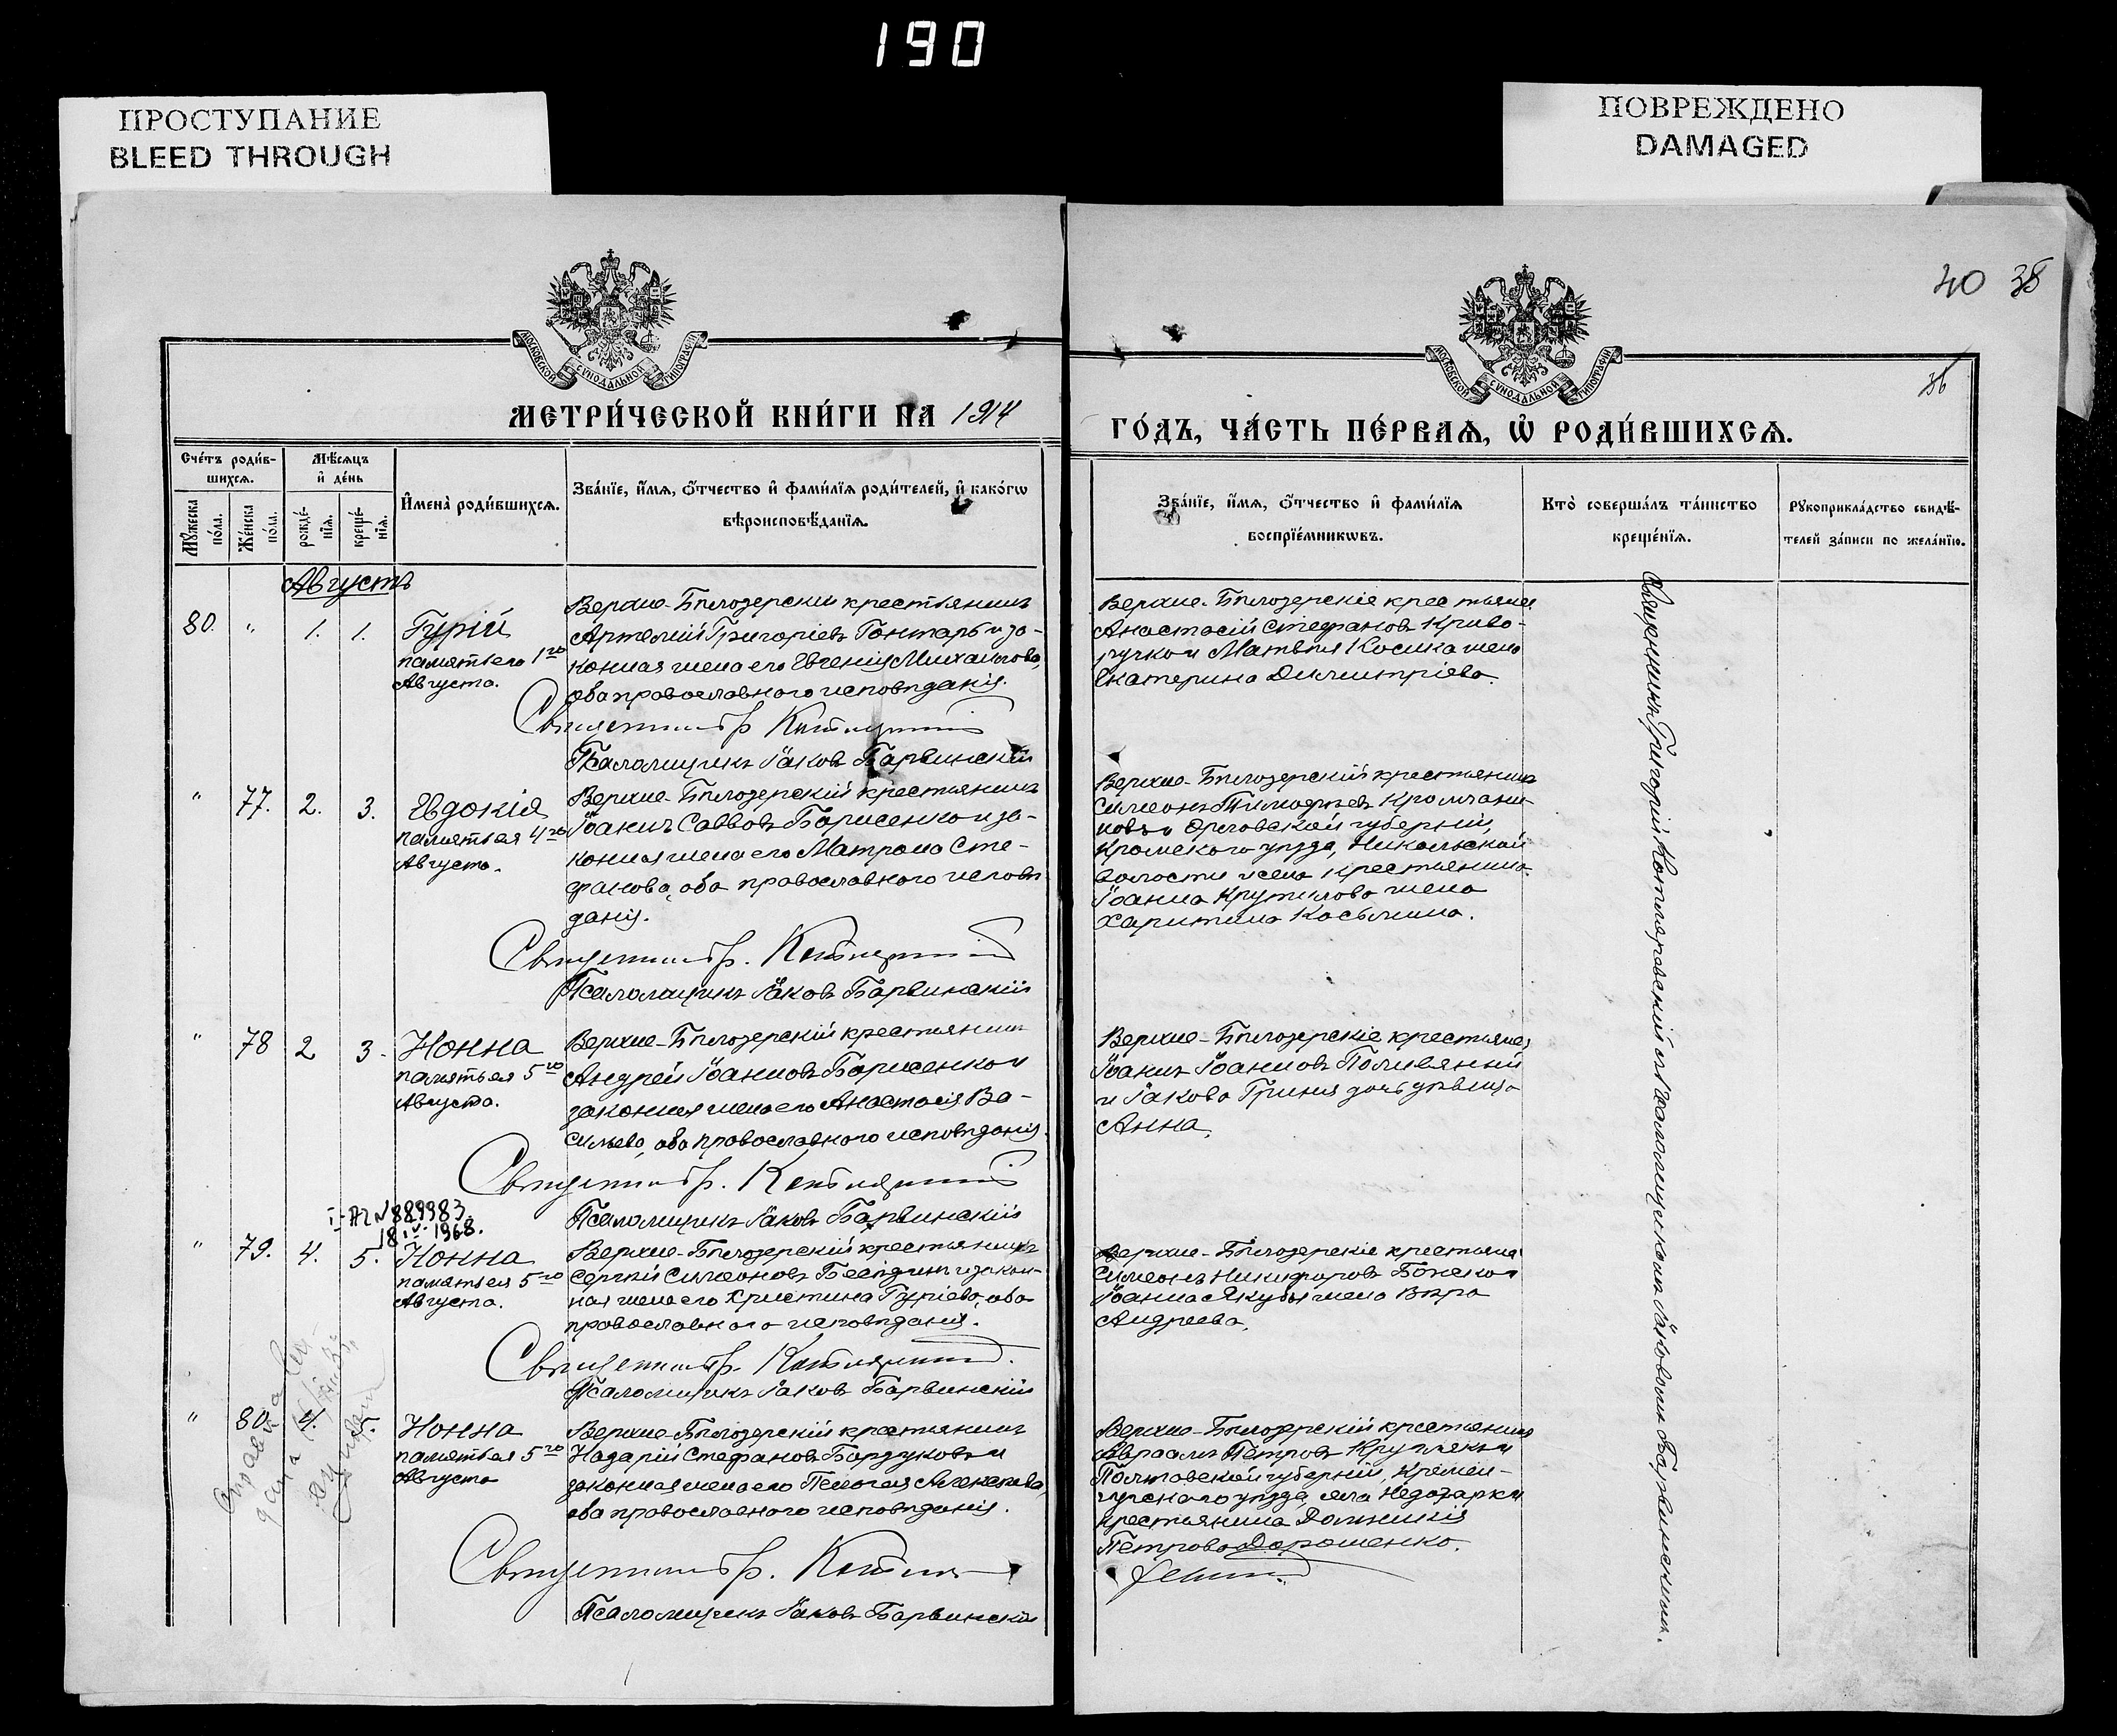 190
ПРОСТУПАНИЕ
BLEED THROUGH
ПОВРЕЖДЕНО
DAMAGED
40 38
36
МОСКОВСКОЙ СѴНОДАЛЬНОЙ ТИПОГРАФІИ
МОСКОВСКОЙ СѴНОДАЛЬНОЙ ТИПОГРАФІИ
МЕТРИ́ЧЕСКОЙ КНИ́ГИ НА 1914
ГО́ДЪ, ЧА́СТЬ ПЕ́РВАѦ, Ѡ҆ РОДИ́ВШИХСѦ.
Сче́тъ роди́в-
шихсѧ.
Мꙋ́жеска по́ла.
Же́нска по́ла.
Мѣ́сѧцъ
и҆ де́нь
рожде́-нїѧ.
креще́-нїѧ.
И҆мена̀ роди́вшихсѧ.
Зва́нїе, и҆́мѧ, ѻ҆́тчество и҆ фами́лїѧ роди́телей, и҆ како́гѡ
вѣроисповѣ́данїѧ.
Зва́нїе, и҆́мѧ, ѻ҆́тчество и҆ фами́лїѧ
воспрїе́мникѡвъ.
Кто̀ соверша́лъ та́инство
креще́нїѧ.
Рꙋкоприкла́дство свидѣ́-
телей за́писи по жела́нїю.
Августъ
80. " 1. 1. Гурій
память его 1го
Августа.
Верхне-Бѣлозерскій крестьянинъ
Артемій Григоріевъ Гонтарь и за-
конная жена его Евгенія Михайлова,
оба православнаго исповѣданія.
Священникъ Гр. Котляревскій
Псаломщикъ Іаковъ Барвинскій
Верхне-Бѣлозерскіе крестьяне
Анастасій Стефановъ Криво-
ручко и Матвѣя Косика жена
Екатерина Димитріева.
" 77. 2. 3. Евдокія
память ея 4го
Августа.
Верхне-Бѣлозерскій крестьянинъ
Іоаннъ Саввовъ Борисенко и за-
конная жена его Матрона Сте-
фанова, оба православнаго исповѣ-
данія.
Священникъ Гр. Котляревскій
Псаломщикъ Іаковъ Барвинскій
Верхне-Бѣлозерскій крестьянинъ
Симеонъ Тимофѣевъ Кромчани-
новъ и Орловской губерніи,
Кромскаго уѣзда, Никольской
волости и села крестьянина
Іоанна Крутилова жена
Харитина Косьмина.
" 78 2 3. Нонна
память ея 5го
Августа.
Верхне-Бѣлозерскій крестьянинъ
Андрей Іоанновъ Борисенко и
законная жена его Анастасія Ва-
сильева, оба православнаго исповѣданія.
Священникъ Гр. Котляревскій
Псаломщикъ Іаковъ Барвинскій
Верхне-Бѣлозерскіе крестьяне
Іоаннъ Іоанновъ Поливяный
и Іакова Гриня дочь дѣвица
Анна.
I-АГ № 889983
18 IV 1968.
" 79. 4. 5. Нонна
память ея 5го
Августа.
Верхне-Бѣлозерскій крестьянинъ
Сергій Симеоновъ Бесѣдинъ и закон-
ная жена его Христина Гуріева, оба
православнаго исповѣданія.
Священникъ Гр. Котляревскій.
Псаломщикъ Іаковъ Барвинскій
Верхне-Бѣлозерскіе крестьяне
Симеонъ Никифоровъ Божко и
Іоанна Якубы жена Вѣра
Андреева.
" 80. 4. 5. Нонна
память ея 5го
Августа
Верхне-Бѣлозерскій крестьянинъ
Назарій Стефановъ Бардуковъ и
законная жена его Пелагея Алексѣева,
оба православнаго исповѣданія.
Священникъ Гр. Котляревскій
Псаломщикъ Іаковъ Барвинскій
Верхне-Бѣлозерскій крестьянинъ
Авраамъ Петровъ Круплякъ и
Полтавской губерніи, Кремен-
чугскаго уѣзда, села Недогарки
крестьянина Домникія
Петрова Дорошенко.
Священникъ Григорій Котляревскій съ псаломщикомъ Іаковомъ Барвинскимъ.